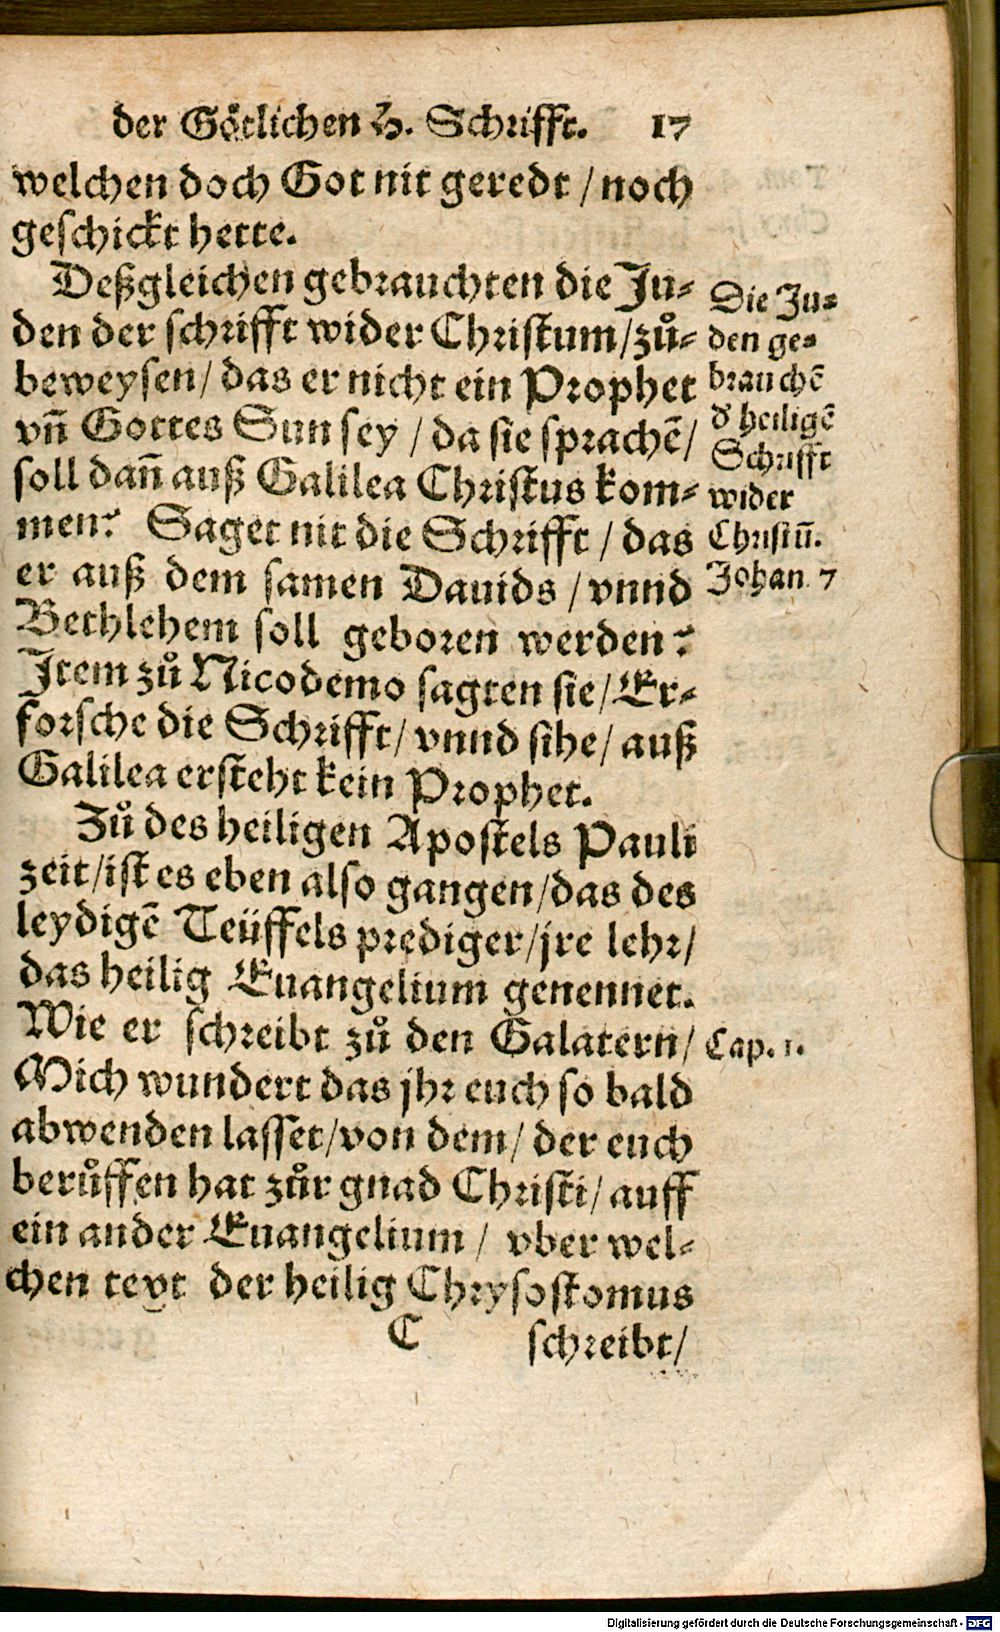 der Götlichen H. Schrifft. 17
welchen doch Got nit geredt / noch
geschickt hette.
Deßgleichen gebrauchten die Ju⸗
den der schrifft wider Christum/zů⸗
beweysen/ das er nicht ein Prophet
vñ Gottes Sun sey / da sie sprachē/
soll dañ auß Galilea Christus kom⸗
men? Saget nit die Schrifft / das
er auß dem samen Dauids / vnnd
Bethlehem soll geboren werden?
Item zů Nicodemo sagten sie/ Er⸗
forsche die Schrifft/ vnnd sihe/ auß
Galilea ersteht kein Prophet.
Die Ju⸗
den ge⸗
brauchē
d' heiligē
Schrifft
wider
Christū.
Johan. 7
Zů des heiligen Apostels Pauli
zeit/ist es eben also gangen/das des
leydigē Teüffels prediger/jre lehr/
das heilig Euangelium genennet.
Wie er schreibt zů den Galatern/
Cap. 1.
Mich wundert das jhr euch so bald
abwenden lasset/von dem/ der euch
berůffen hat zůr gnad Christi/ auff
ein ander Euangelium / vber wel⸗
chen text der heilig Chrysostomus
C schreibt/
Digitalisierung gefördert durch die Deutsche Forschungsgemeinschaft - DFG